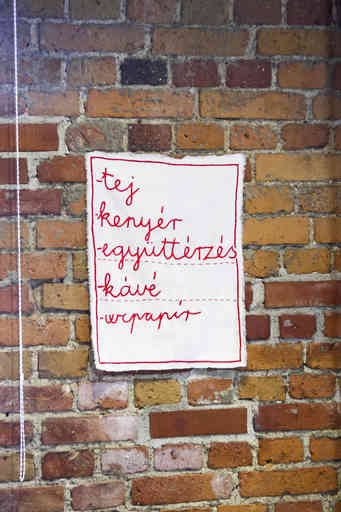 -tej
-kenyér
-együttérzés
-kávé
-wcpapír